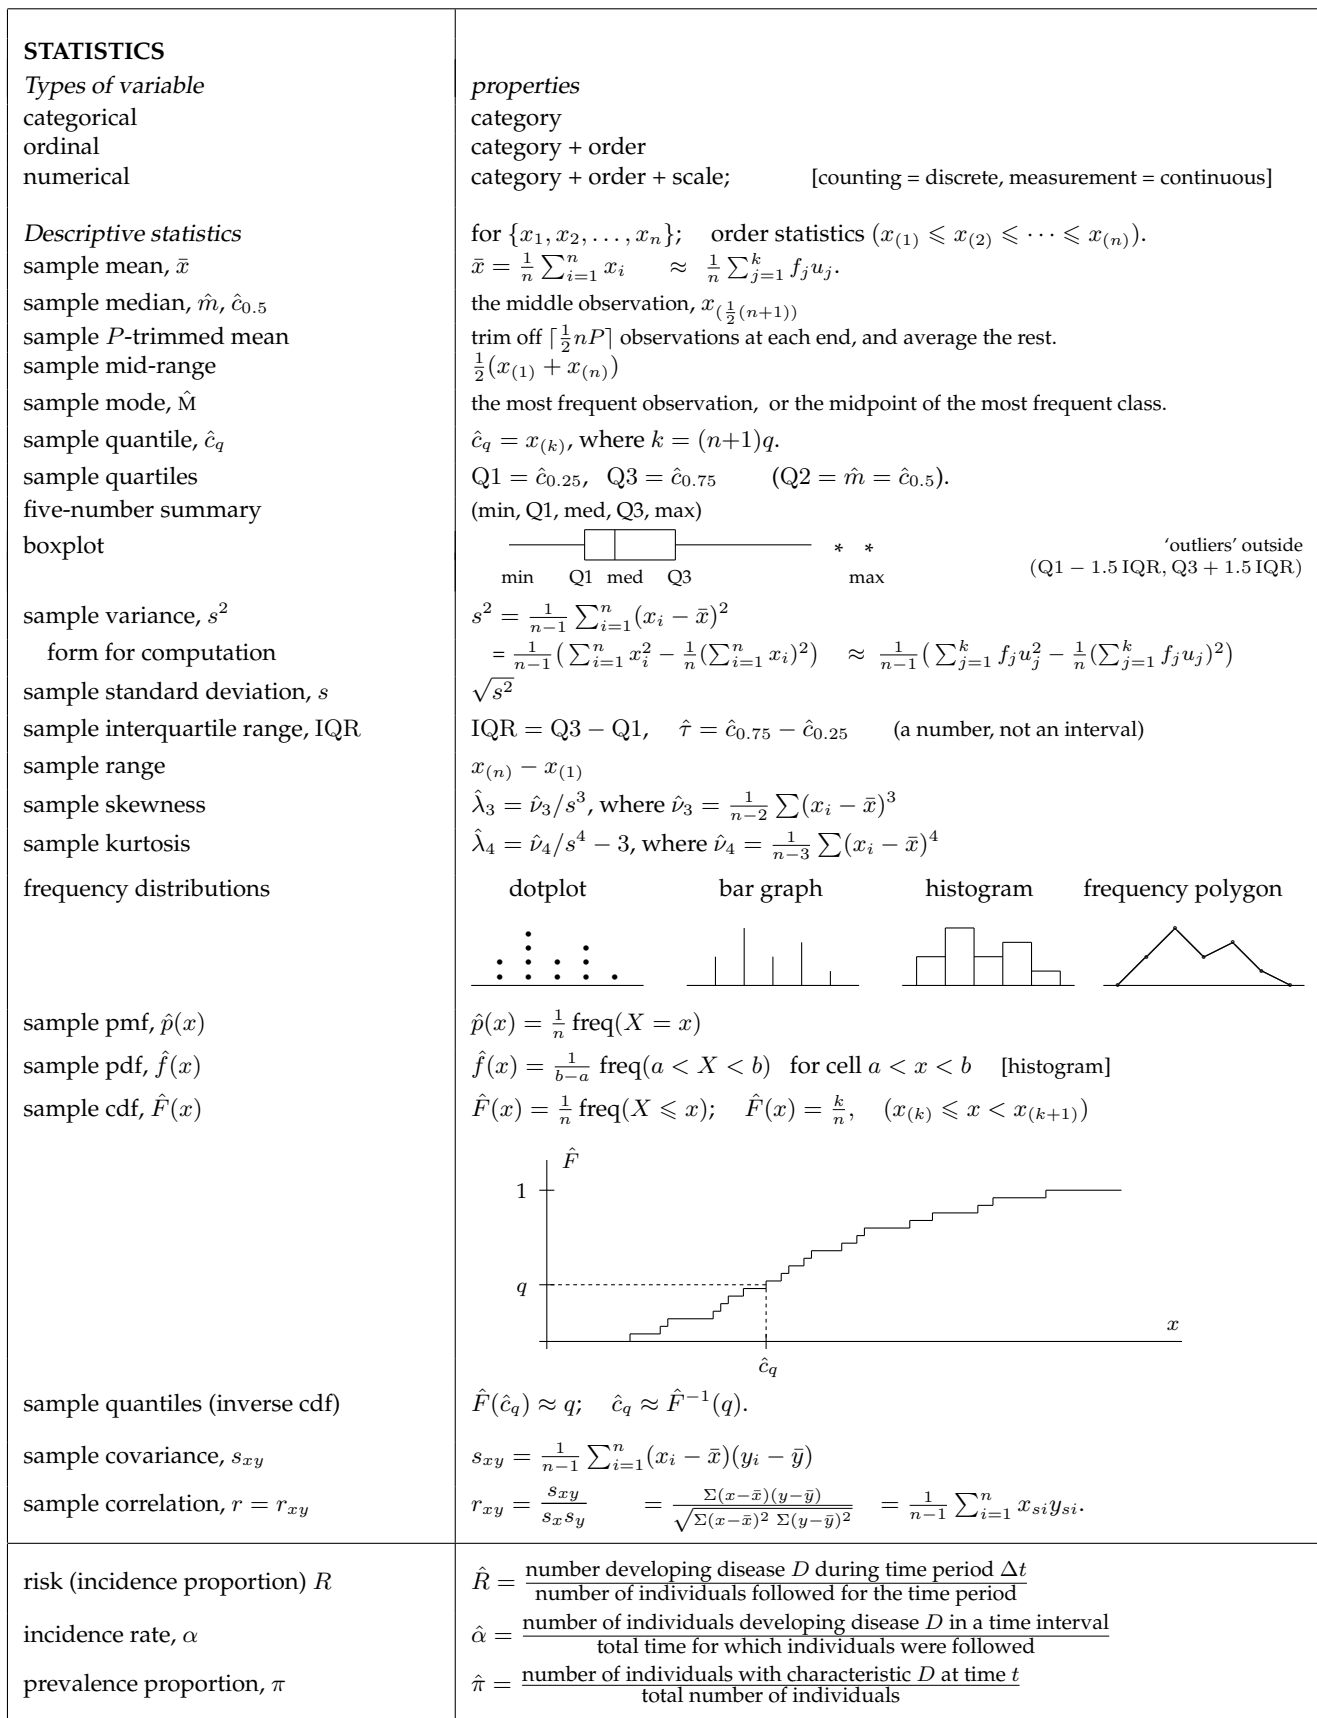 STATISTICS
Types of variable properties
categorical category
ordinal category + order
numerical category + order + scale; [counting = discrete, measurement = continuous]
Descriptive statistics for {x₁, x₂, . . . , xₙ}; order statistics (x₍₁₎ ⩽ x₍₂₎ ⩽ ⋯ ⩽ x₍ₙ₎).
sample mean, x̄ x̄ = 1/n ∑_{i=1}^{n} x_i ≈ 1/n ∑_{j=1}^{k} f_j u_j.
sample median, m̂, ĉ_{0.5} the middle observation, x_{(½(n+1))}
sample P-trimmed mean trim off ⌈½nP⌉ observations at each end, and average the rest.
sample mid-range ½(x₍₁₎ + x₍ₙ₎)
sample mode, M̂ the most frequent observation, or the midpoint of the most frequent class.
sample quantile, ĉ_q ĉ_q = x_{(k)}, where k = (n+1)q.
sample quartiles Q1 = ĉ_{0.25}, Q3 = ĉ_{0.75} (Q2 = m̂ = ĉ_{0.5}).
five-number summary (min, Q1, med, Q3, max)
boxplot * * 'outliers' outside
min Q1 med Q3 max (Q1 − 1.5 IQR, Q3 + 1.5 IQR)
sample variance, s² s² = 1/(n−1) ∑_{i=1}^{n} (x_i − x̄)²
form for computation = 1/(n−1) ( ∑_{i=1}^{n} x_i² − 1/n (∑_{i=1}^{n} x_i)² ) ≈ 1/(n−1) ( ∑_{j=1}^{k} f_j u_j² − 1/n (∑_{j=1}^{k} f_j u_j)² )
sample standard deviation, s √s²
sample interquartile range, IQR IQR = Q3 − Q1, τ̂ = ĉ_{0.75} − ĉ_{0.25} (a number, not an interval)
sample range x₍ₙ₎ − x₍₁₎
sample skewness λ̂₃ = ν̂₃/s³, where ν̂₃ = 1/(n−2) ∑(x_i − x̄)³
sample kurtosis λ̂₄ = ν̂₄/s⁴ − 3, where ν̂₄ = 1/(n−3) ∑(x_i − x̄)⁴
frequency distributions dotplot bar graph histogram frequency polygon
sample pmf, p̂(x) p̂(x) = 1/n freq(X = x)
sample pdf, f̂(x) f̂(x) = 1/(b−a) freq(a < X < b) for cell a < x < b [histogram]
sample cdf, F̂(x) F̂(x) = 1/n freq(X ⩽ x); F̂(x) = k/n, (x_{(k)} ⩽ x < x_{(k+1)})
F̂
1
q
x
ĉ_q
sample quantiles (inverse cdf) F̂(ĉ_q) ≈ q; ĉ_q ≈ F̂⁻¹(q).
sample covariance, s_{xy} s_{xy} = 1/(n−1) ∑_{i=1}^{n} (x_i − x̄)(y_i − ȳ)
sample correlation, r = r_{xy} r_{xy} = s_{xy}/(s_x s_y) = Σ(x−x̄)(y−ȳ)/√(Σ(x−x̄)² Σ(y−ȳ)²) = 1/(n−1) ∑_{i=1}^{n} x_{si} y_{si}.
risk (incidence proportion) R R̂ = number developing disease D during time period Δt
number of individuals followed for the time period
incidence rate, α α̂ = number of individuals developing disease D in a time interval
total time for which individuals were followed
prevalence proportion, π π̂ = number of individuals with characteristic D at time t
total number of individuals